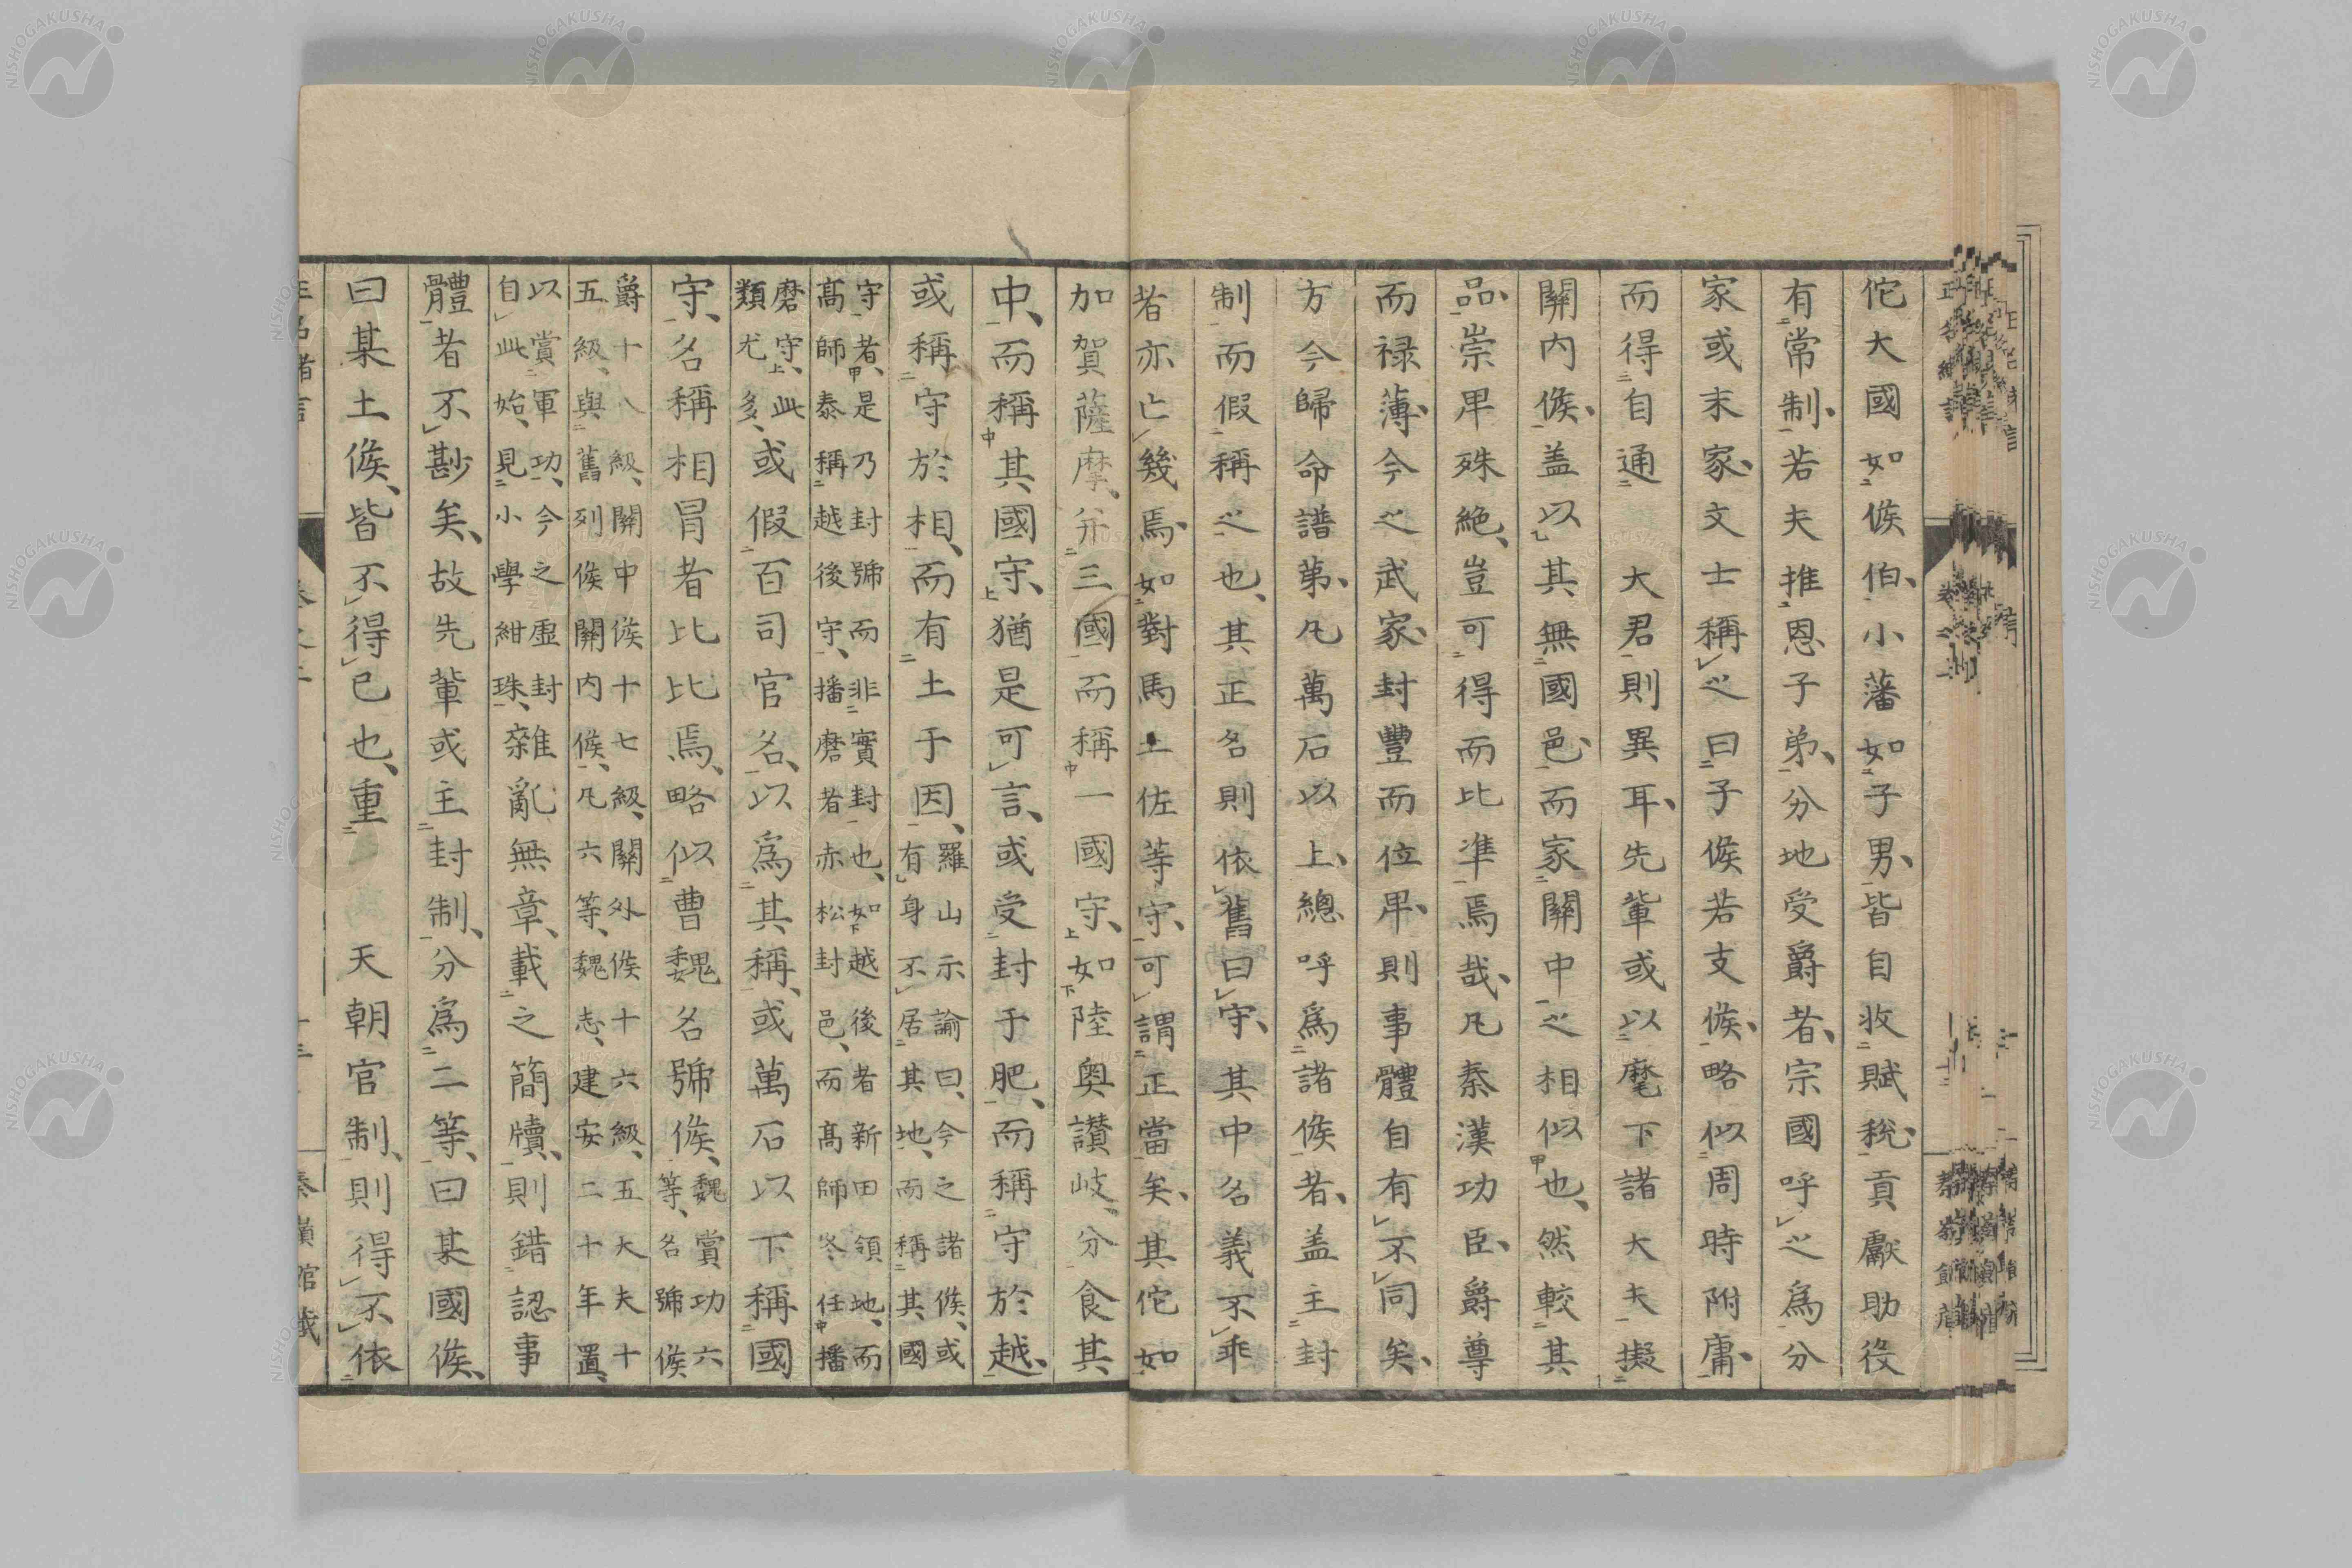 佗大國如侯伯、小藩如子男、皆自收賦稅、貢獻助役
有常制、若夫推恩子弟、分地受爵者、宗國呼之爲分
家或末家、文士稱之曰子侯若支侯、略似周時附庸、
而得自通　大君則異耳、先輩或以麾下諸大夫擬
關内侯、盖以其無國邑、而家關中之相似也、然較其
品、崇卑殊絶、豈可得而比準焉哉、凡秦漢功臣、爵尊
而祿薄、今之武家、封豐而位卑、則事體自有不同矣、
方今歸命譜第、凡萬石以上、總呼爲諸侯者、盖主封
制而假稱之也、其正名則依舊曰守、其中名義不乖
者亦亡幾焉、如對馬土佐等守、可謂正當矣、其佗如
加賀薩摩、并三國而稱一國守、如陸奥讃岐、分食其
中、而稱其國守、猶是可言、或受封于肥、而稱守於越、
或稱守於相、而有土于因、羅山示諭曰、今之諸侯、或
有身不居其地、而稱其國
守者、是乃封號而非實封也、如越後者新田領地、而
高師泰稱越後守、播磨者赤松封邑、而高師冬任播
磨守、此
類尤多、或假百司官名、以爲其稱、或萬石以下稱國
守、名稱相冒者比比焉、略似曹魏名號侯、魏賞功六
等、名號侯
爵十八級、關中侯十七級、關外侯十六級、五大夫十
五級、與舊列侯關内侯、凡六等、魏志、建安二十年置、
以賞軍功、今之虛封
自此始、見小學紺珠、雜亂無章、載之簡牘、則錯認事
體者不尠矣、故先輩或主封制、分爲二等、曰某國侯、
曰某土侯、皆不得已也、重　天朝官制、則得不依